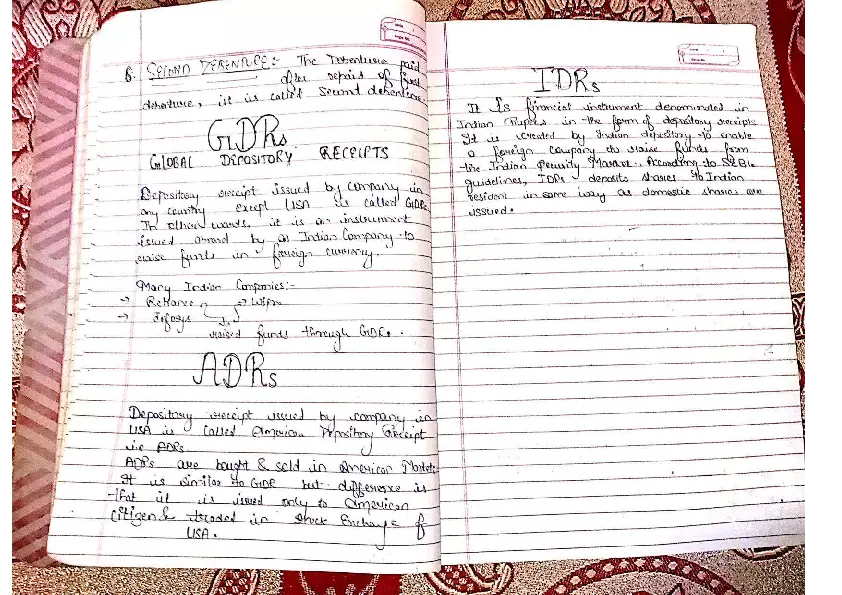 6. SECOND DEBENTURE:- The Debentures paid
after repais of first
debenture, it is called second debenture.
GDRs
GLOBAL DEPOSITORY RECEIPTS
Depository receipt issued by company in
any country except USA is called GDR.
In other words, it is an instrument
issued abroad by an Indian Company to
raise funds in foreign currency.
Many Indian Companies:-
→ Reliance → Wipro
→ Infosys
raised funds through GDRs.
ADRs
Depository receipt issued by company in
USA is called American Depository Receipt
i.e ADRs
ADRs are bought & sold in American Markets
It is similar to GDR but difference is
that it is issued only to American
citizen & traded in stock Exchange of
USA.
IDRs
It Is financial instrument denominated in
Indian Rupees in the form of depository receipts
It is created by Indian depository to enable
a foreign company to raise funds from
the Indian Security Market. According to SEBI
guidelines, IDRs deposits shares to Indian
resident in same way as domestic shares are
issued.